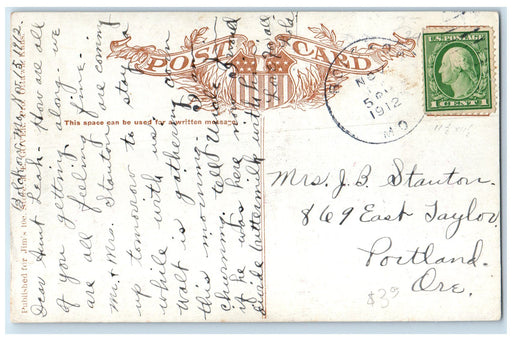 POST CARD
This space can be used for a written message.
Published for Jim's
Nov. 5, 1912.
Dear Aunt Leah - How are all
of you getting along - we
are all feeling fine -
Mr. & Mrs. Stanton are coming
up tomorrow to stay a
while with us
Walt is gathering corn
this morning. I've been
churning. Tell Wade
if he was here I would
divide buttermilk with him
Love to all
NOV
5 PM
1912
MO
U.S. POSTAGE
1 CENT 1
Mrs. J.B. Stanton.
869 East Taylor
Portland.
Ore.
$3